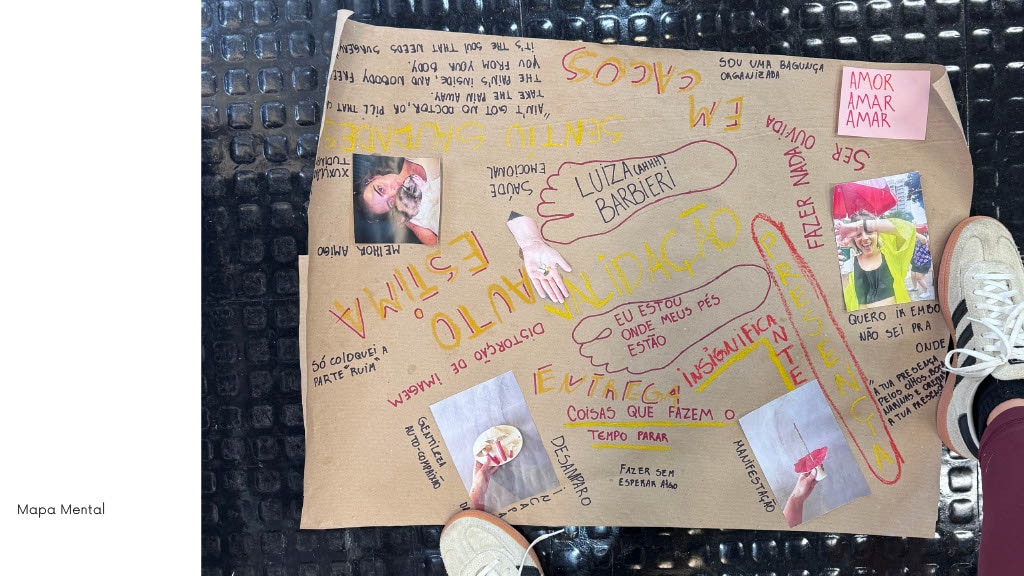 Mapa Mental
"AIN'T GOT NO DOCTOR, OR, PILL THAT
TAKE THE PAIN AWAY.
THE PAIN'S INSIDE AND NOBODY FREE
YOU FROM YOUR BODY.
IT'S THE SOUL THAT NEEDS SURGERY
EM
CACOS
SOU UMA BAGUNÇA
ORGANIZADA
AMOR
AMAR
AMAR
SENTIU SAUDADES
SER
OUVIDA
FAZER NADA
SAÚDE
EMOCIONAL
LUIZA (AHHH)
BARBIERI
MELHOR AMIGO
AUTO
ESTIMA
VALIDAÇÃO
EU ESTOU
ONDE MEUS PÉS
ESTÃO
PRESENÇA
QUERO IR EMBO
NÃO SEI PRA
ONDE
"A TUA PRESENÇA
PELOS OLHOS, BOCA
NARINAS E
A TUA PRESENÇA
SÓ COLOQUEI A
PARTE "RUIM"
DISTORÇÃO DE IMAGEM
INSIGNIFICANTE
ENTREGA
COISAS QUE FAZEM O
TEMPO PARAR
GENTILEZA
AUTO-COMPAIXÃO
DESAMPARO
FAZER SEM
ESPERAR ALGO
MANIFESTAÇÃO